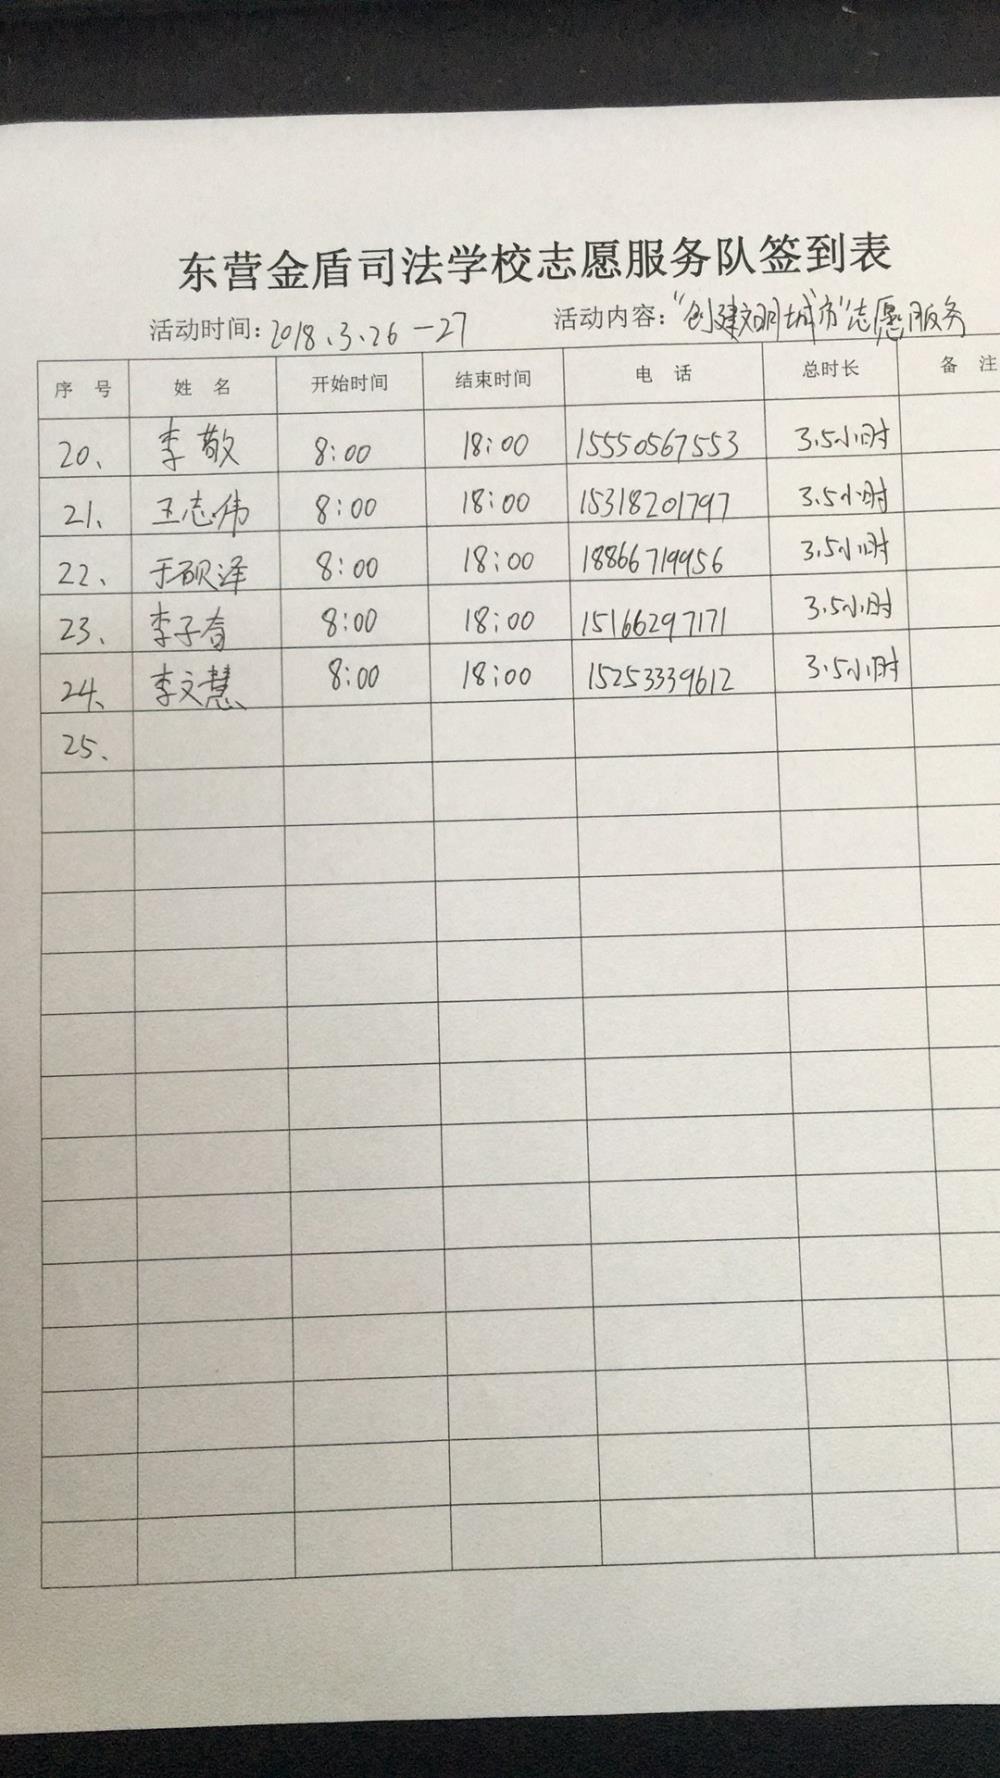 东营金盾司法学校志愿服务队签到表
活动时间：2018.3.26-27 活动内容："创建文明城市"志愿服务
序号 姓名 开始时间 结束时间 电话 总时长 备注
20、 李敬 8:00 18:00 15550567553 3.5小时
21、 王志伟 8:00 18:00 15318201797 3.5小时
22、 于砚泽 8:00 18:00 18866719956 3.5小时
23、 李子奇 8:00 18:00 15166297171 3.5小时
24、 李文慧 8:00 18:00 15253339612 3.5小时
25、